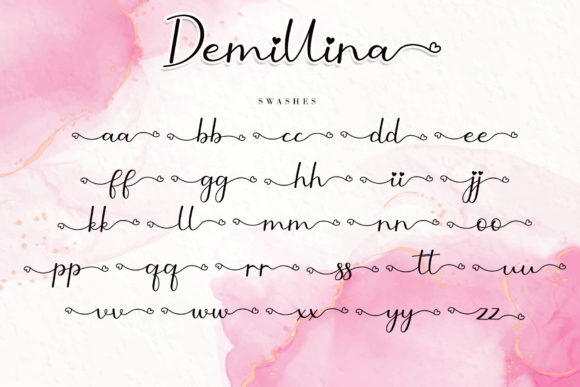 Demillina
SWASHES
aa bb cc dd ee
ff gg hh ii jj
kk ll mm nn oo
pp qq rr ss tt uu
vv ww xx yy zz